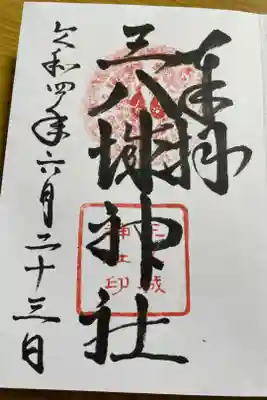 奉拝
三八城神社
三八城
神社印
令和四年六月二十三日